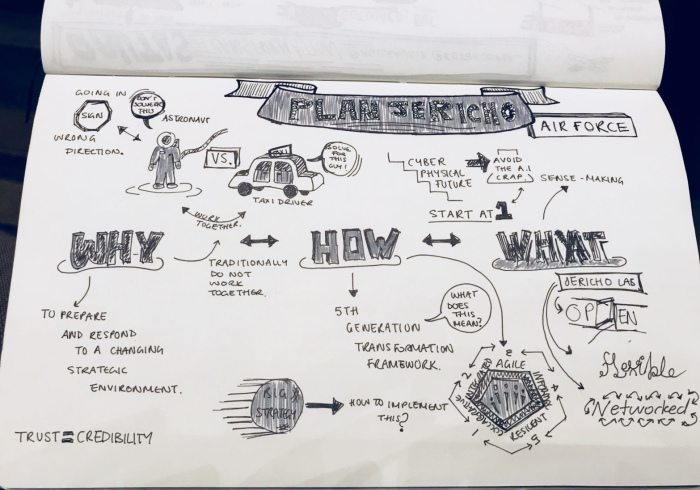 PLAN JERICHO
AIR FORCE
GOING IN
SIGN
WRONG
DIRECTION.
DON'T
SOLVE FOR
THIS
ASTRONAUT
VS.
TAXI
SOLVE
FOR
THIS
GUY!
TAXI DRIVER
WORK
TOGETHER.
CYBER
PHYSICAL
FUTURE
AVOID
THE A.I
CRAP.
START AT 1
SENSE-MAKING
WHY
HOW
WHAT
TRADITIONALLY
DO NOT
WORK
TOGETHER.
TO PREPARE
AND RESPOND
TO A CHANGING
STRATEGIC
ENVIRONMENT.
TRUST = CREDIBILITY
5TH
GENERATION
TRANSFORMATION
FRAMEWORK.
WHAT
DOES
THIS
MEAN?
BIG
STRATEGY
HOW TO IMPLEMENT
THIS?
1
2
3
4
5
COLLABORATIVE
INTEGRATED
AGILE
RESILENT
JERICHO LAB
OPEN
flexible
Networked